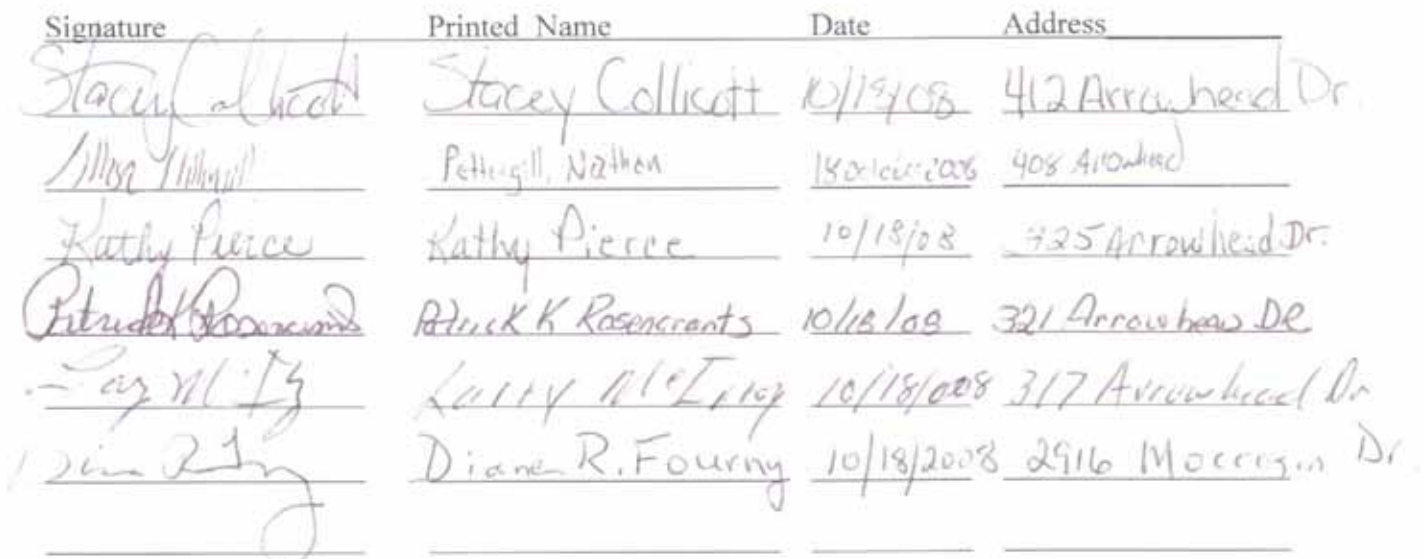 Signature Printed Name Date Address
Stacey Collicott Stacey Collicott 10/18/08 412 Arrowhead Dr.
Pettengill, Nathan 2008 408 Arrowhead
Kathy Pierce Kathy Pierce 10/18/08 325 Arrowhead Dr.
Patrick K Rosencrants Patrick K Rosencrants 10/18/08 321 Arrowhead DR
Larry McElroy 10/18/008 317 Arrowhead Dr
Diane R. Fourny 10/18/2008 2916 Dr.